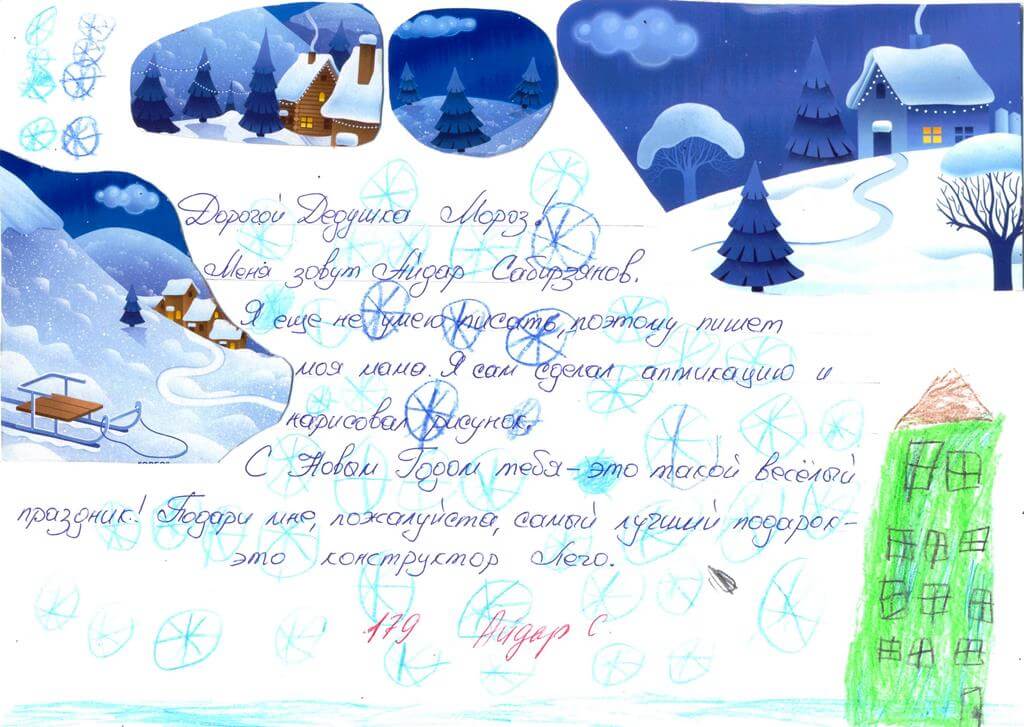 Дорогой Дедушка Мороз!
Меня зовут Айдар Сабирзянов.
Я еще не умею писать, поэтому пишет
моя мама. Я сам сделал аппикацию и
нарисовал рисунок.
С Новым Годом тебя - это такой весёлый
праздник! Подари мне, пожалуйста, самый лучший подарок -
это конструктор Лего.
179 Айдар С.